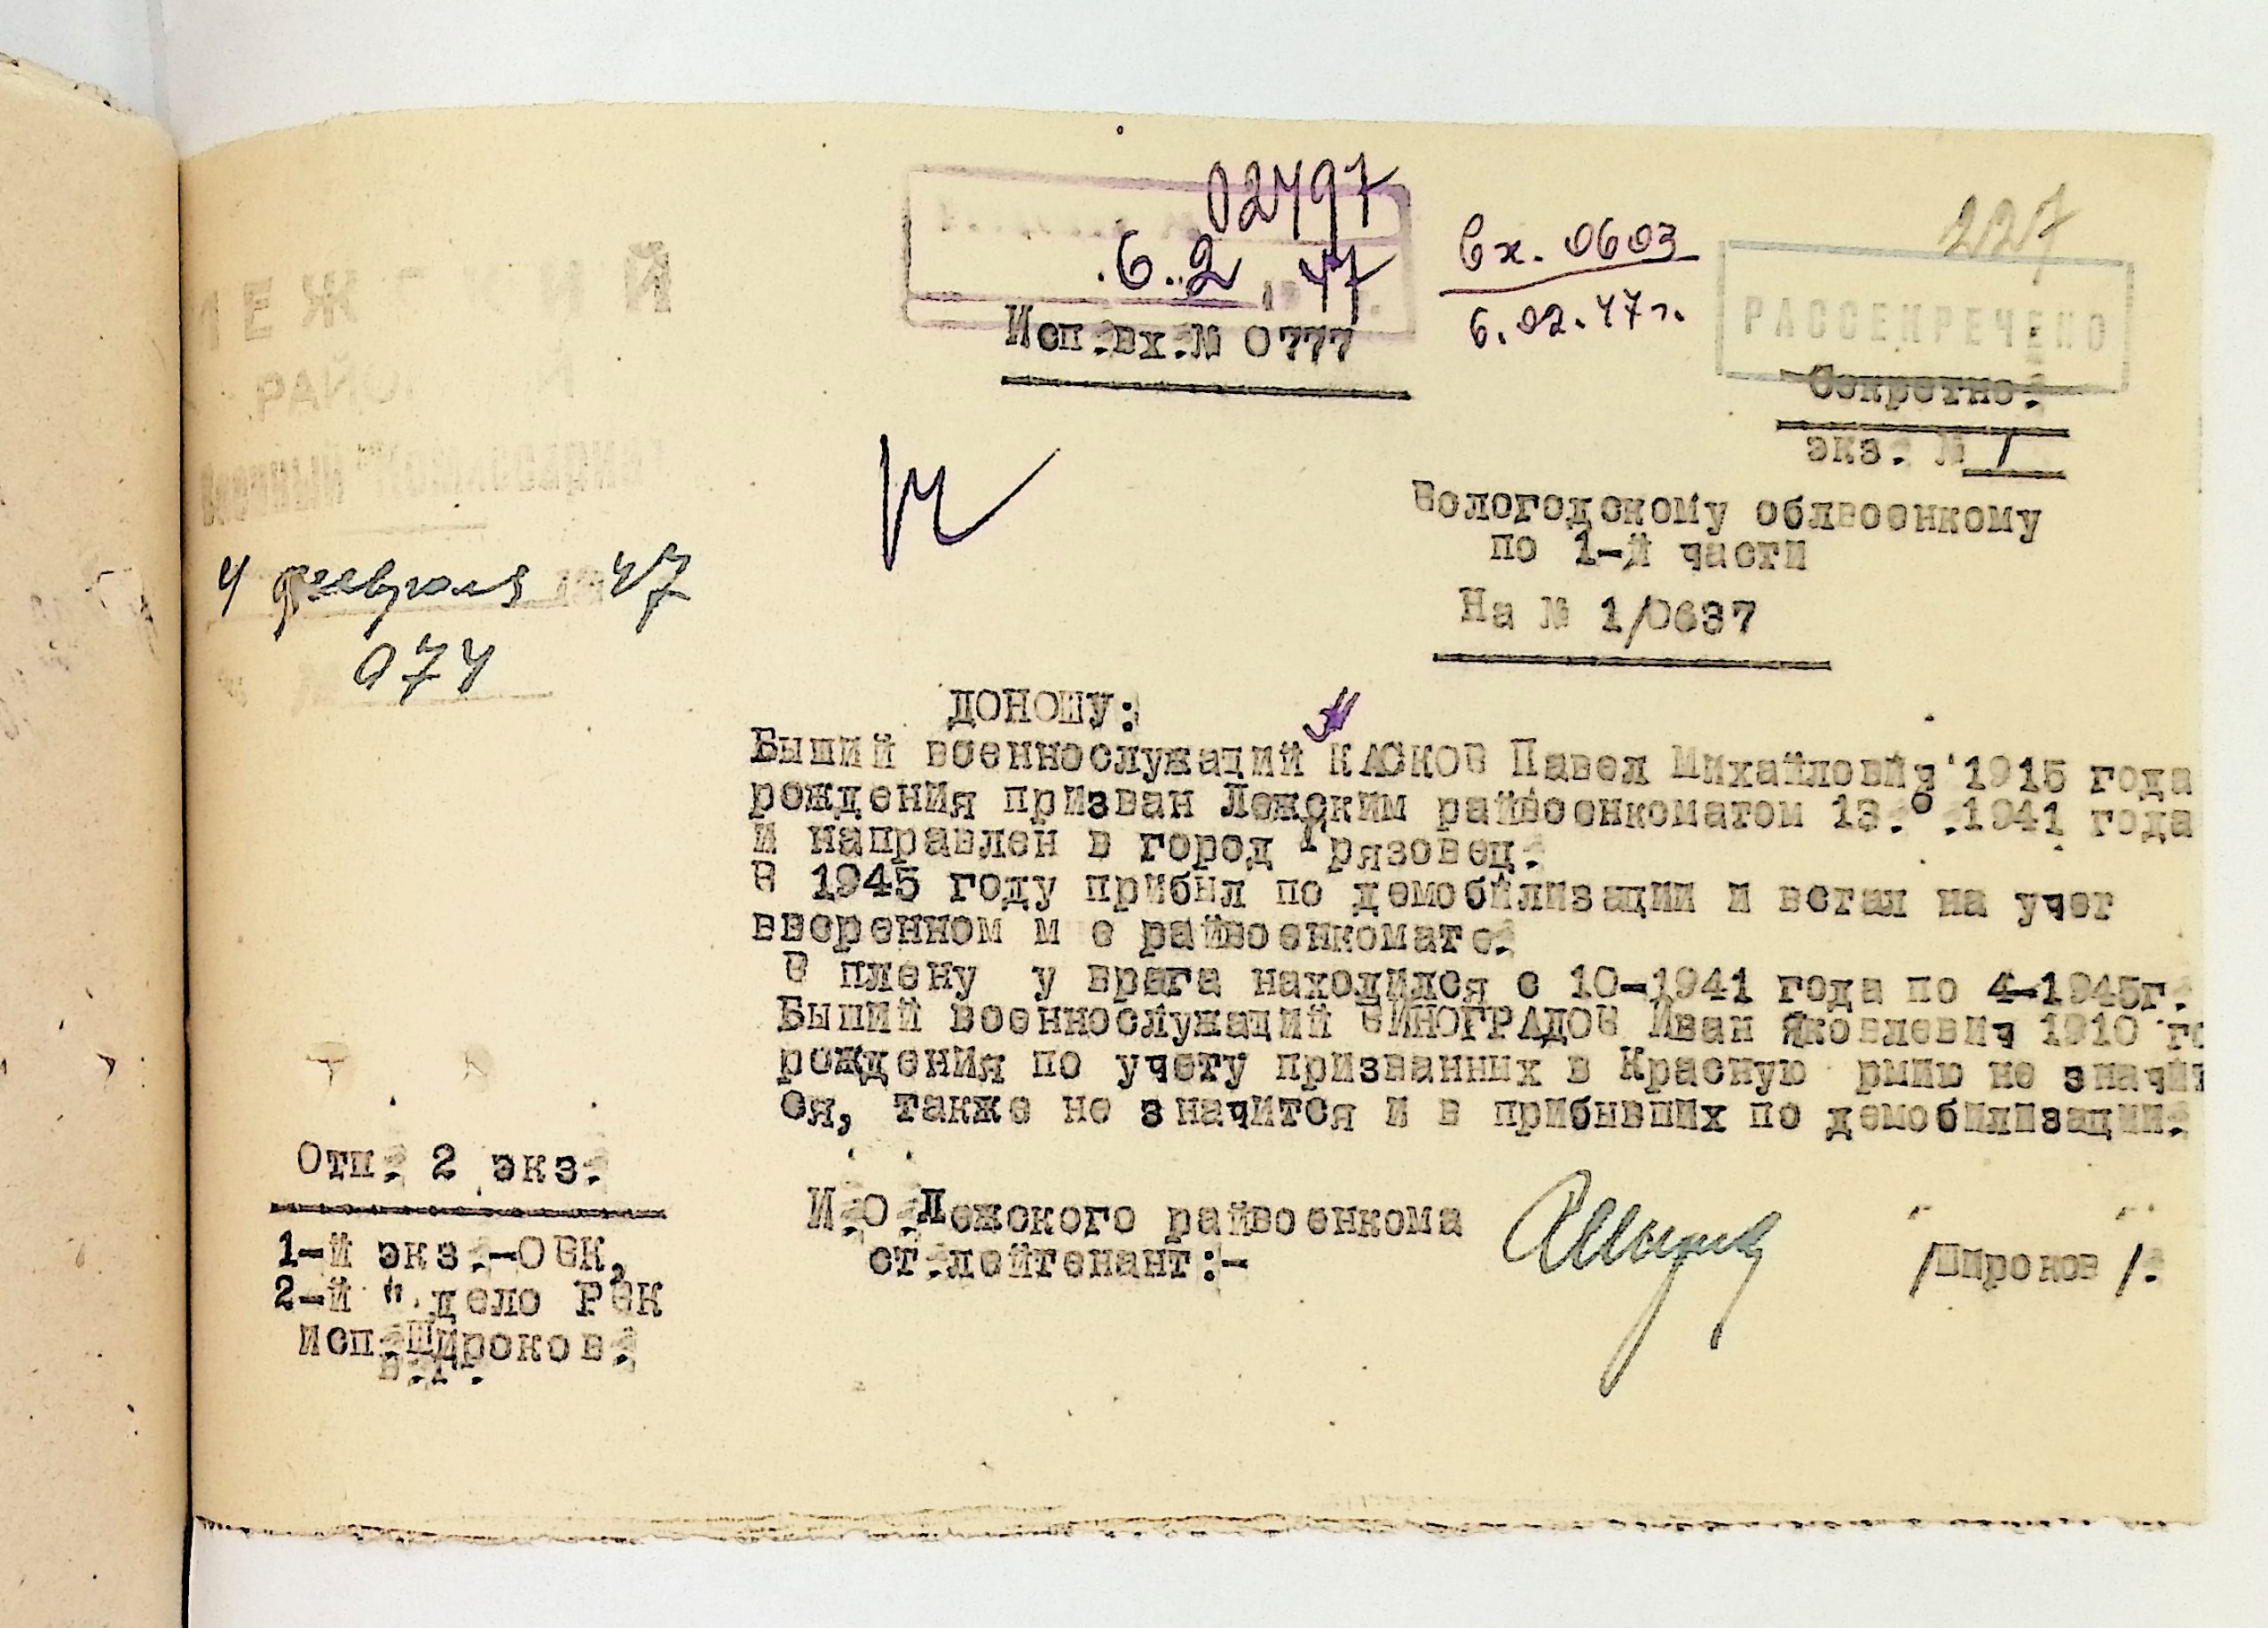 02497
6. 2. 47
Исп.вх.№ 0777
Вх. 0603
6.02.47г.
227
РАССЕКРЕЧЕНО
Секретно.
экз. № 1
Вологодскому облвоенкому
по 1-й части
На № 1/0637
4 февраля 1947
074
ДОНОШУ:
Быший военнослужащий КАСКОВ Павел Михайлович 1915 года
рождения призван Лежским райвоенкоматом 13. .1941 года
и направлен в город Грязовец.
В 1945 году прибыл по демобилизации и встал на учет
вверенном м е райвоенкомате.
В плену у врага находился с 10-1941 года по 4-1945г.
Быший военнослужащий ВИНОГРАДОВ Иван Яковлевич 1910 го
рождения по учету призванных в Красную рмию не значит
ся, также не значится и в прибывших по демобилизации.
Отп. 2 экз.
1-й экз.-ОВК,
2-й " дело РВК
Исп.Широков.
В.Г.
И.О.Лежского райвоенкома
ст.лейтенант:-
/Широков /.